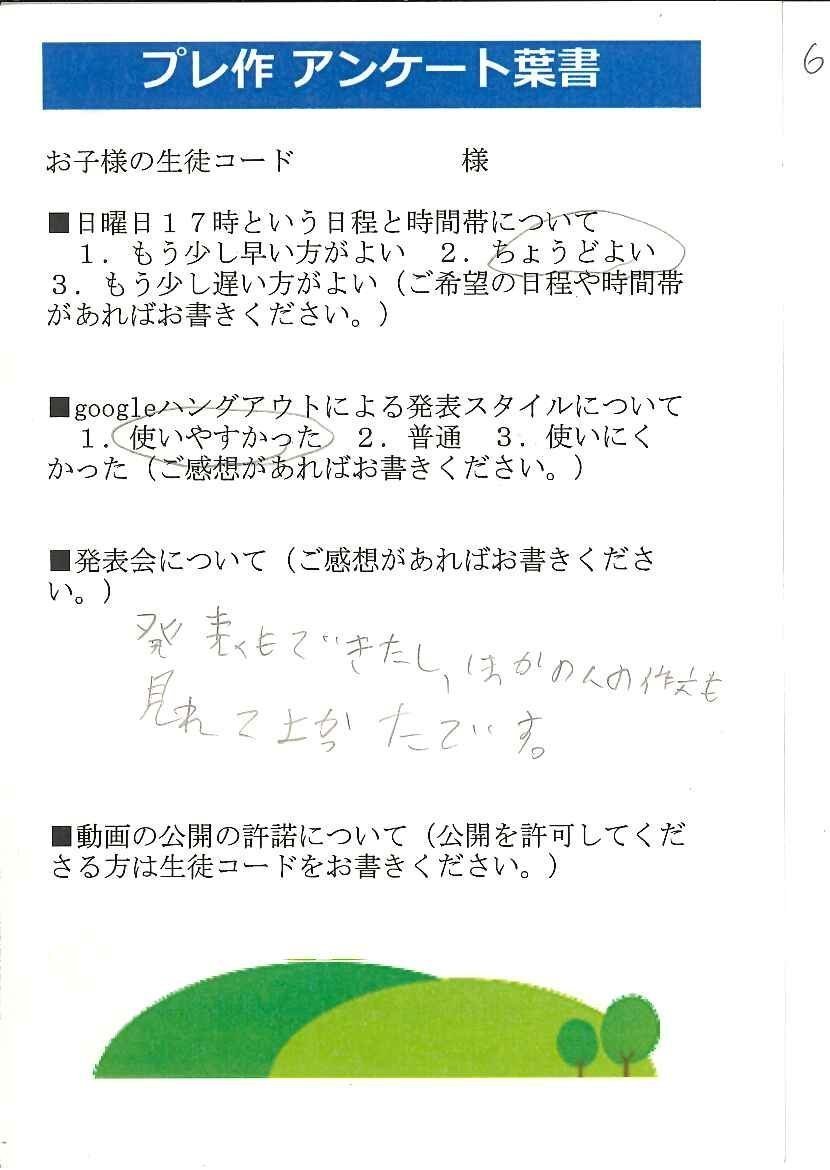 プレ作 アンケート葉書
6
お子様の生徒コード 様
■日曜日１７時という日程と時間帯について
１．もう少し早い方がよい ２．ちょうどよい
３．もう少し遅い方がよい（ご希望の日程や時間帯
があればお書きください。）
■googleハングアウトによる発表スタイルについて
１．使いやすかった ２．普通 ３．使いにく
かった（ご感想があればお書きください。）
■発表会について（ご感想があればお書きくださ
い。）
発表もできたし,ほかの人の作文も
見れて上かったです。
■動画の公開の許諾について（公開を許可してくだ
さる方は生徒コードをお書きください。）